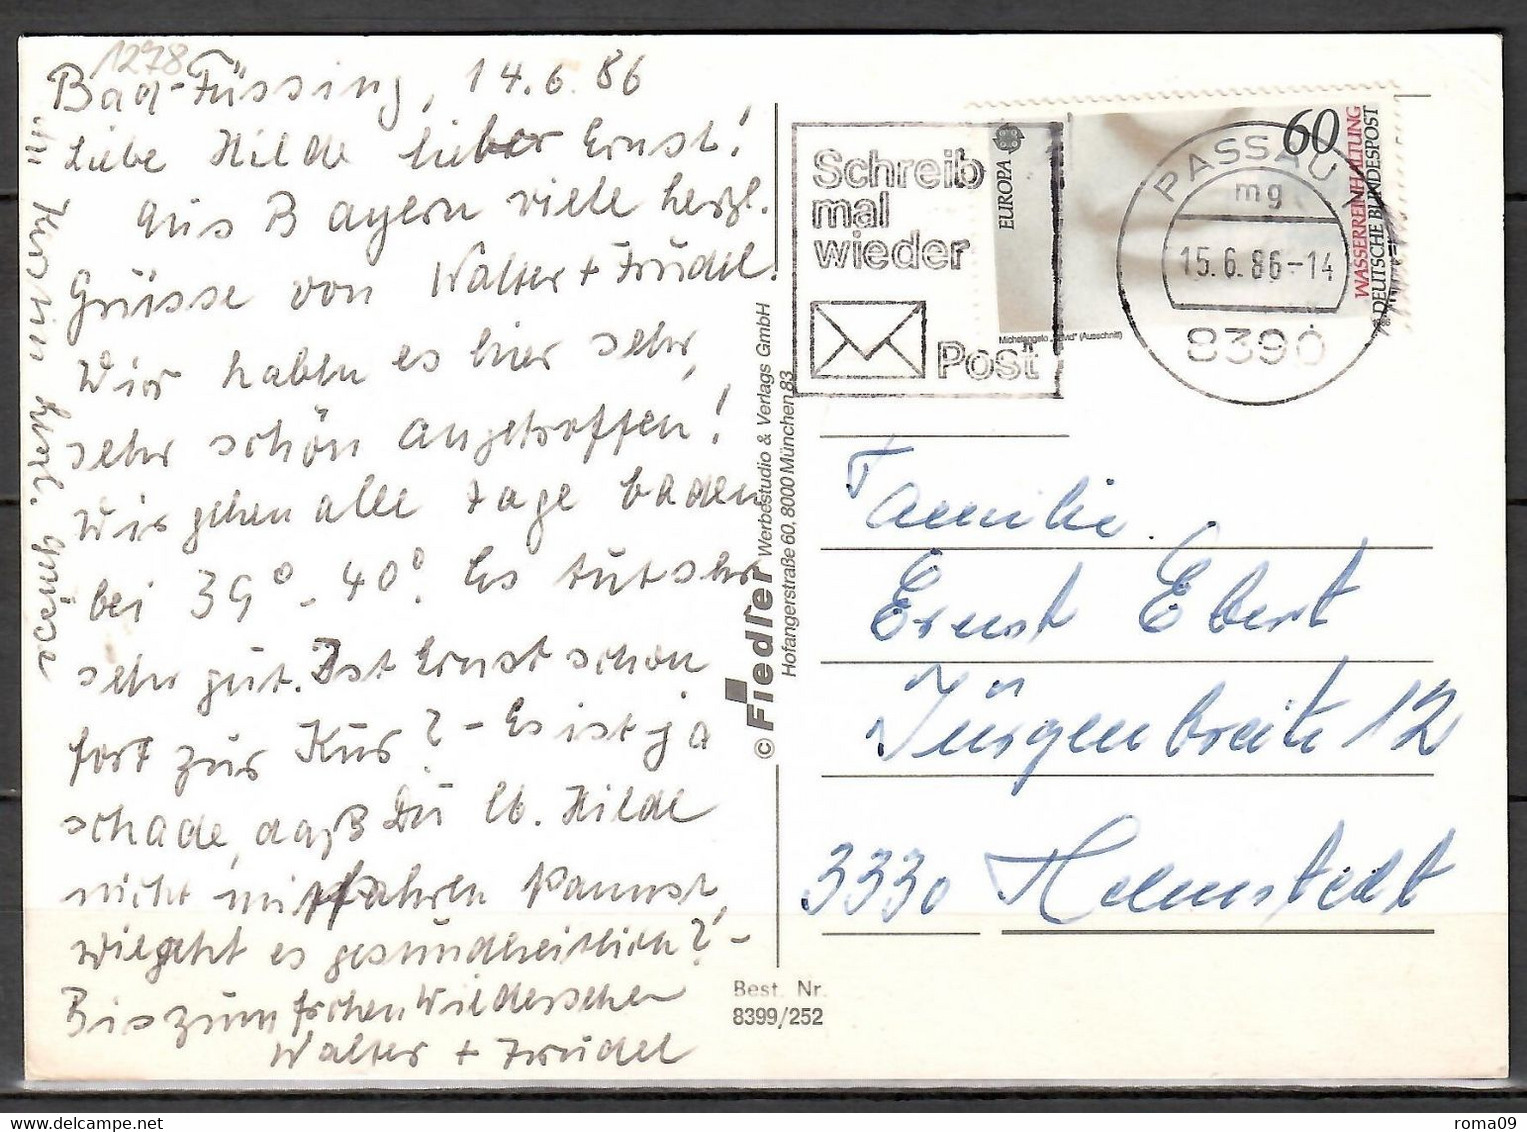 1278
Bad-Füssing, 14.6.86
Liebe Hilde lieber Ernst!
Aus Bayern viele herzl.
Grüsse von Walter + Trudel.
Wir haben es hier sehr,
sehr schön angetroffen!
Wir gehen alle Tage baden
bei 39° - 40°. Es tut sehr
sehr gut. Ist Ernst schon
fort zur Kur? - Es ist ja
schade, daß Du lb. Hilde
nicht mitfahren kannst,
wie geht es gesundheitlich? -
Bis zum frohen Wiedersehen
Walter + Trudel
herzl. Grüsse
© Fiedler Werbestudio & Verlags GmbH
Hofangerstraße 60, 8000 München 83
Best. Nr.
8399/252
Schreib
mal
wieder
Post
EUROPA
60
WASSERREINHALTUNG
DEUTSCHE BUNDESPOST
Michelangelo „David" (Ausschnitt)
PASSAU 1
mg
15.6.86-14
8390
Familie
Ernst Ebert
Jürgenbreite 12
3330 Helmstedt
www.delcampe.net
roma09